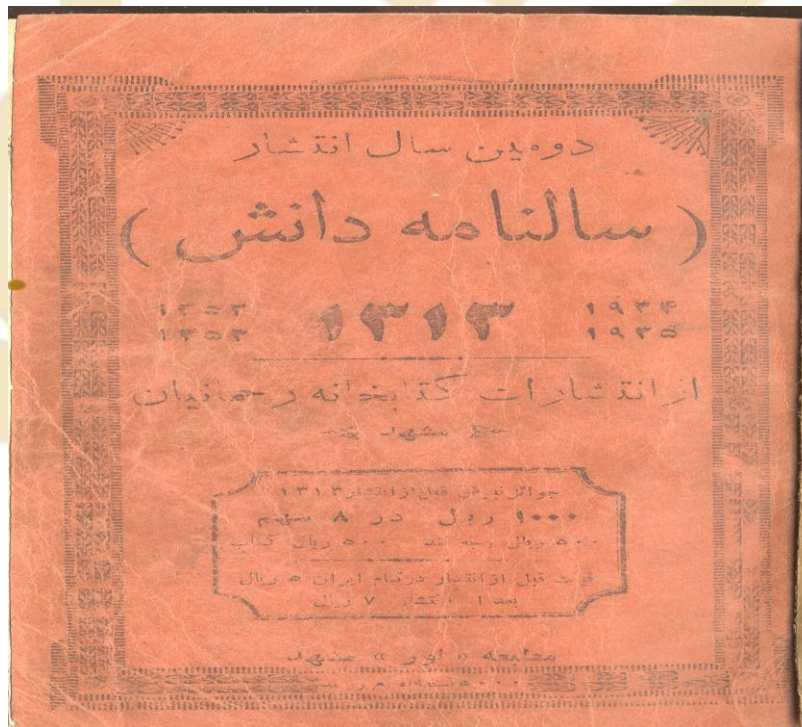 دومین سال انتشار
( سالنامه دانش )
۱۹۳۴ ۱۳۱۳ ۱۳۵۲
۱۹۳۵ ۱۳۵۳
از انتشارات کتابخانه رحمانیان
مشهد
جوائز فروش قبل از انتشار ۱۳۱۳
۱۰۰۰ ریال در ۸ سهم
۵۰۰ ریال وجه نقد ۵۰۰ ریال کتاب
قیمت قبل از انتشار در تمام ایران ۵ ریال
بعد از انتشار ۷ ریال
مطبعه « نور » مشهد